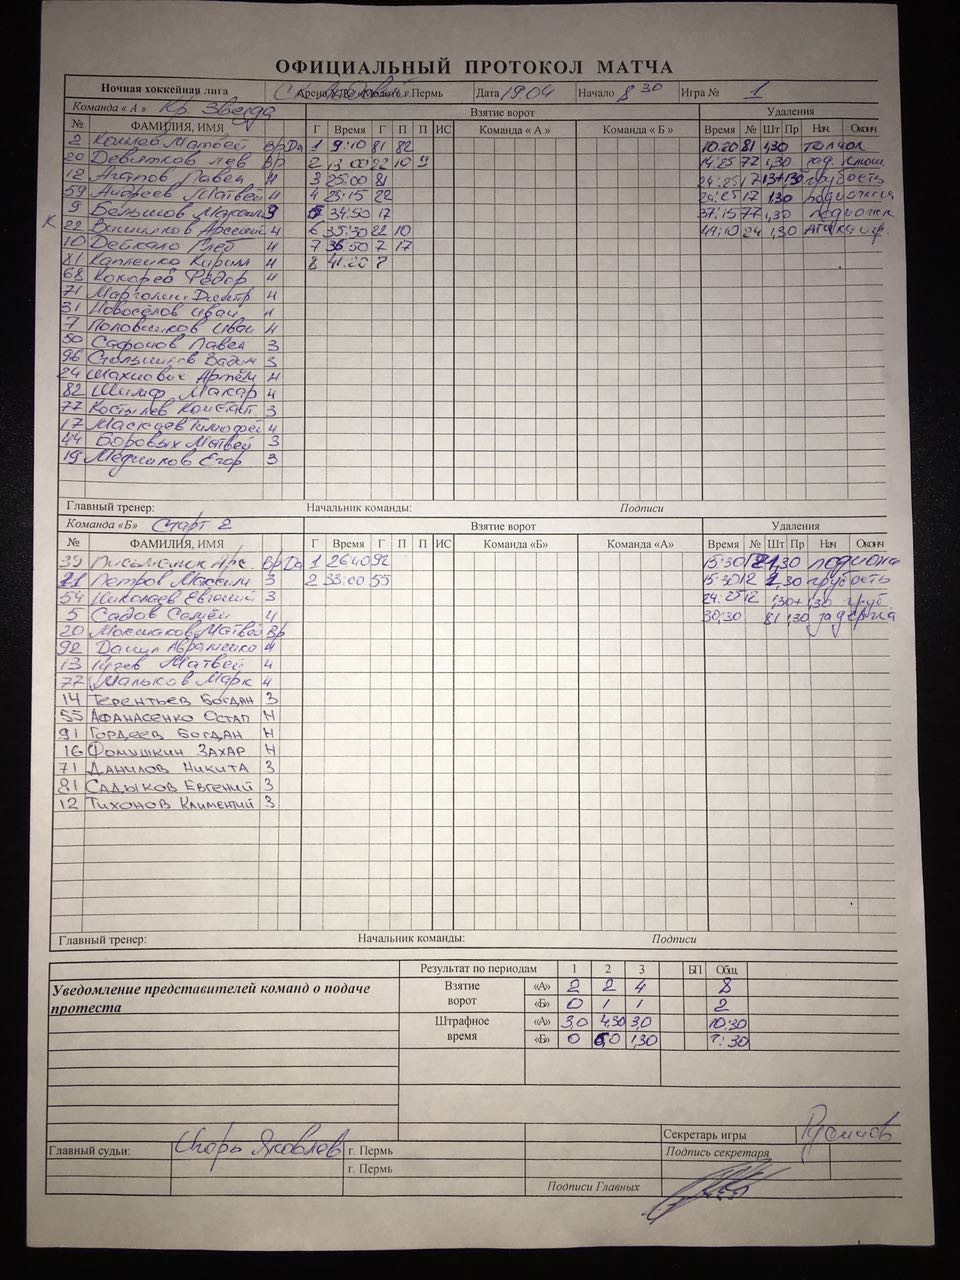 ОФИЦИАЛЬНЫЙ ПРОТОКОЛ МАТЧА
Ночная хоккейная лига Арена г.Пермь Дата 19 04 Начало 8 30 Игра № 1
Команда « А » Кр. Звезда Взятие ворот Удаления
№ ФАМИЛИЯ, ИМЯ Г Время Г П П ИС Команда « А » Команда « Б » Время № Шт Пр Нач Оконч
2 Матвей Вр Да 1 9:10 81 82 10:20 81 1,30 толчок
20 Девятков Лев Вр 2 13:00 22 10 9 14:25 77 1,30 зад.
12 Агапов Павел Н 3 25:00 81 24:25 17 1,30+1,30 грубость
59 Андреев Матвей Н 4 25:15 22 24:25 17 1,30
К 9 Максим 5 34:50 17 37:15 77 1,30
22 Арсений Н 6 35:30 22 10 44:10 24 1,30
10 Дейкало Глеб Н 7 36:50 7 17
81 Капленко Кирилл Н 8 41:20 7
68 Кокорев Фёдор Н
71 Марголин Дмитр Н
31 Новосёлов Иван Н
7 Половников Иван Н
50 Сафонов Павел З
96 Вадим З
24 Шахнович Артём Н
82 Макар Н
77 Костылев Констант. З
17 Тимофей Н
44 Боровых Матвей З
19 Медников Егор З
Главный тренер: Начальник команды: Подписи
Команда «Б» Старт 2 Взятие ворот Удаления
№ ФАМИЛИЯ, ИМЯ Г Время Г П П ИС Команда «Б» Команда «А» Время № Шт Пр Нач Оконч
39 Арс. Вр Да 1 26:40 92 15:30 1,30
Петров Максим З 2 33:00 55 15:30 12 1,30 грубость
54 Николаев Евгений З 24:25 12 1,30+1,30 груб.
5 Садов Семён Н 30:30 81 1,30 задержка
20 Матвей Вр
92 Данил Авраменко Н
13 Матвей Н
77 Мальков Марк Н
14 Терентьев Богдан З
55 Афанасенко Остап Н
91 Гордеев Богдан Н
16 Фомушкин Захар Н
71 Данилов Никита З
81 Садыков Евгений З
12 Тихонов Климентий З
Главный тренер: Начальник команды: Подписи
Результат по периодам 1 2 3 БП Общ.
Уведомление представителей команд о подаче протеста
Взятие ворот «А» 2 2 4 8
«Б» 0 1 1 2
Штрафное время «А» 3,0 4,30 3,0 10:30
«Б» 0 6,0 1,30 7:30
Секретарь игры
Главный судьи: Игорь Яковлев г. Пермь Подпись секретаря
г. Пермь
Подписи Главных